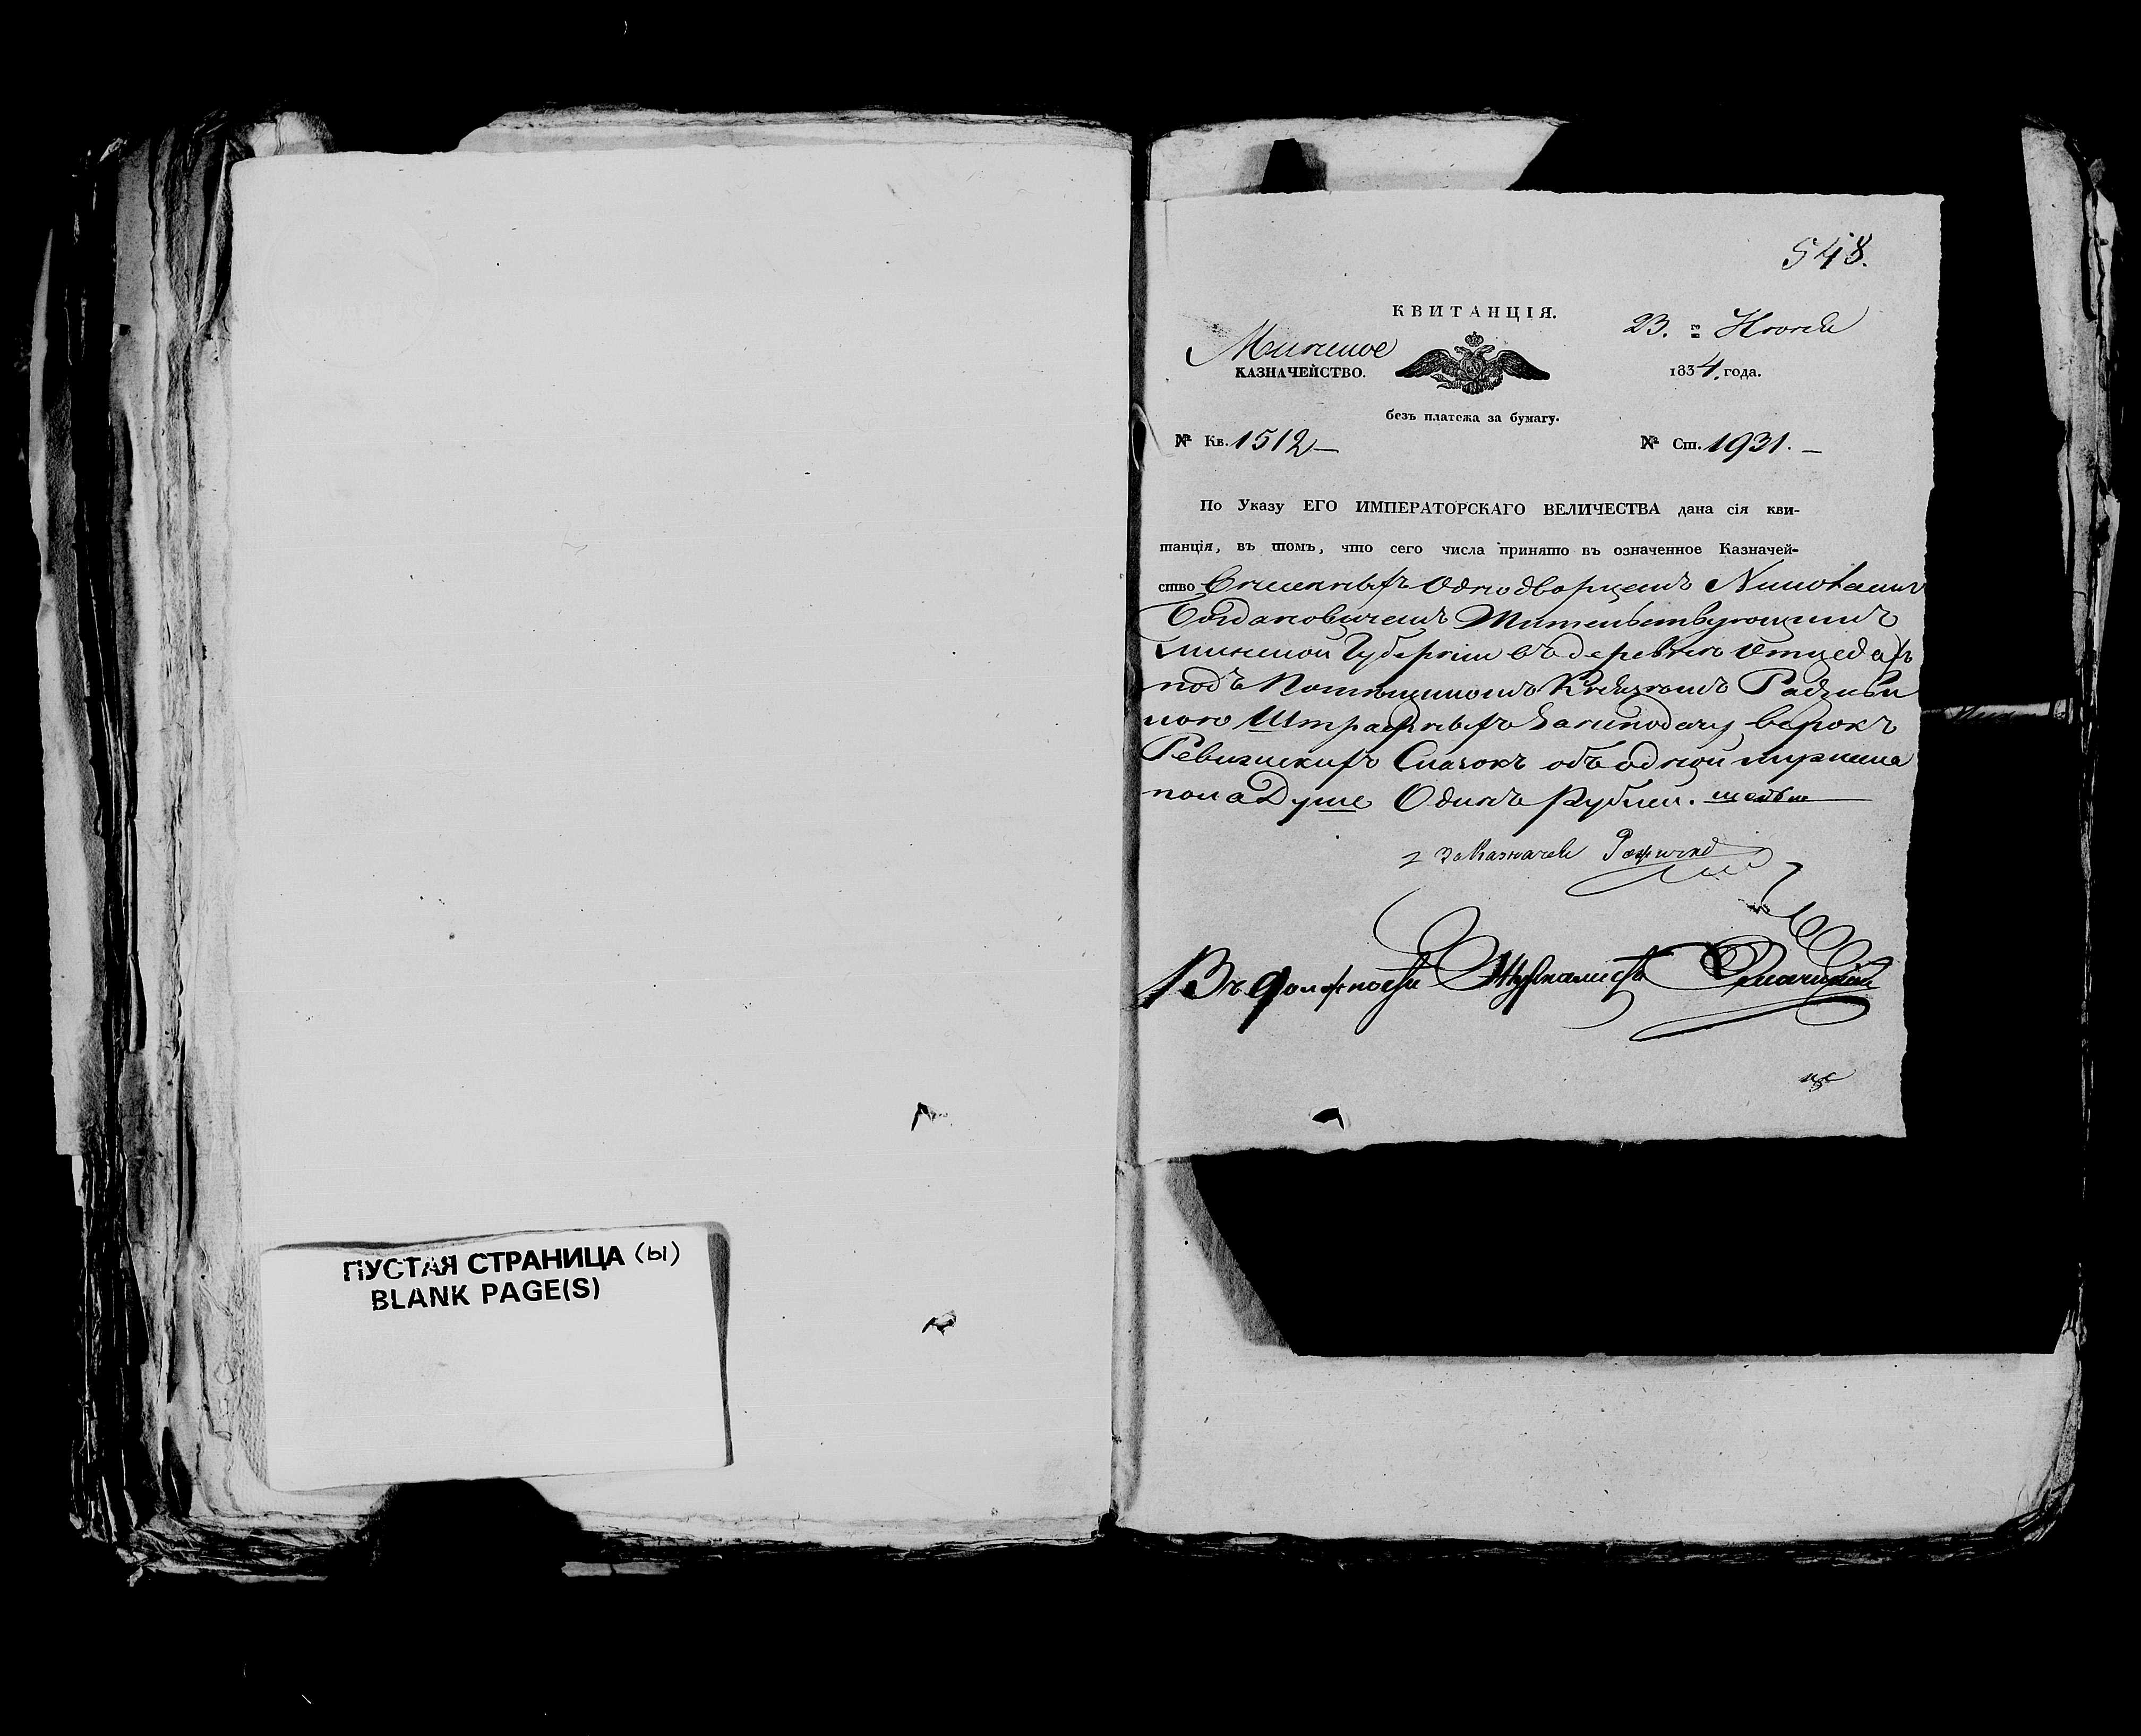 ПУСТАЯ СТРАНИЦА (ы)
BLANK PAGE(S)
548.
КВИТАНЦІЯ.
Минское
КАЗНАЧЕЙСТВО.
23. Июня
1834. года.
безъ платежа за бумагу.
№ Кв. 1512
№ Ст. 1931.
По Указу ЕГО ИМПЕРАТОРСКАГО ВЕЛИЧЕСТВА дана сія кви-
танція, въ томъ, что сего числа принято въ означенное Казначей-
ство Однодворцемъ
Богдановичемъ Жительствующимъ
Минской Губерніи въ деревню
подъ Помещикомъ Княземъ Радзиви
Штрафныхъ Занеподачу всрокъ
Ревизскихъ Сказокъ объ одной мужеска
пола Душе Одинъ Рубль.
За Казначея
Въ должности Журналиста